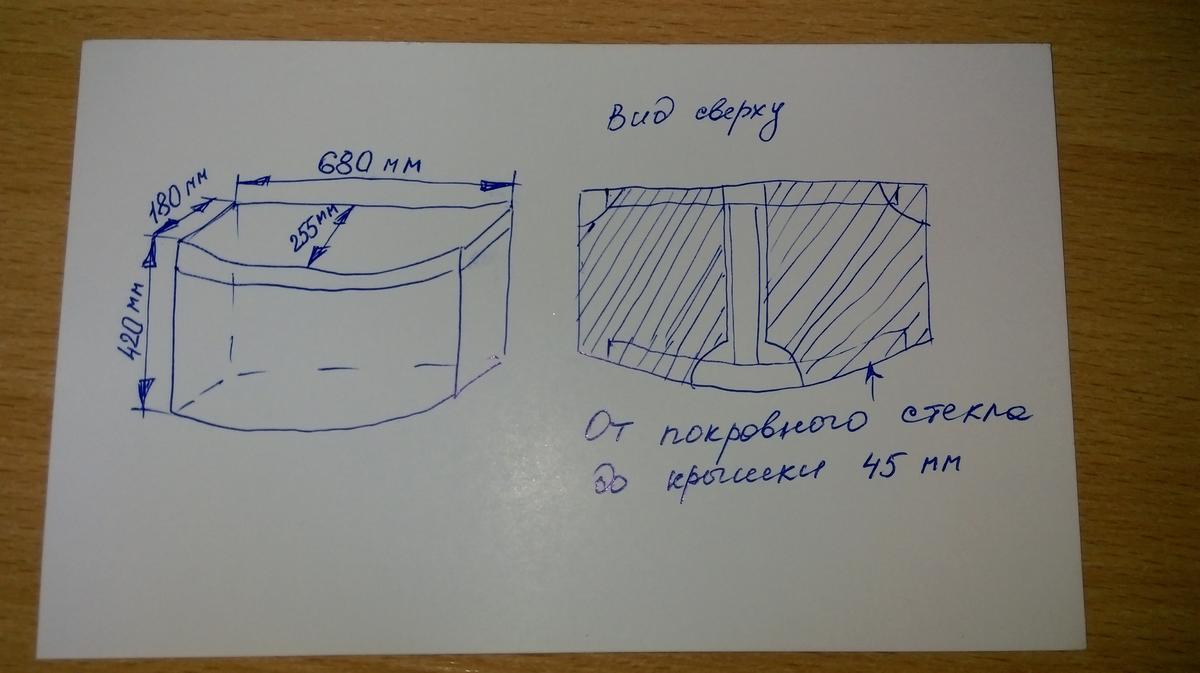 Вид сверху
680 мм
180 мм
255 мм
420 мм
От покровного стекла
до крышки 45 мм